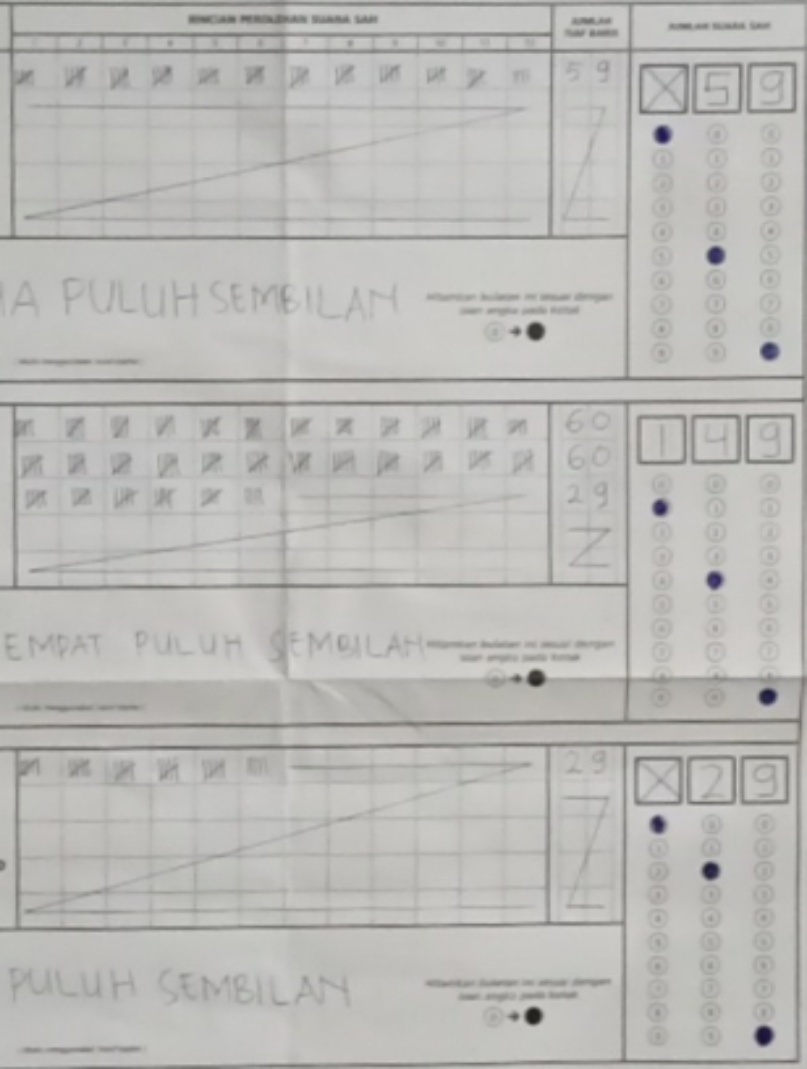 RINCIAN PEROLEHAN SUARA SAH
JUMLAH TIAP BARIS
JUMLAH SUARA SAH
1 2 3 4 5 6 7 8 9 10 11 12
59
X 5 9
A PULUH SEMBILAN
Hitamkan bulatan ini sesuai dengan
isian angka pada kotak
60
60
29
1 4 9
EMPAT PULUH SEMBILAN
Hitamkan bulatan ini sesuai dengan
isian angka pada kotak
29
X 2 9
PULUH SEMBILAN
Hitamkan bulatan ini sesuai dengan
isian angka pada kotak